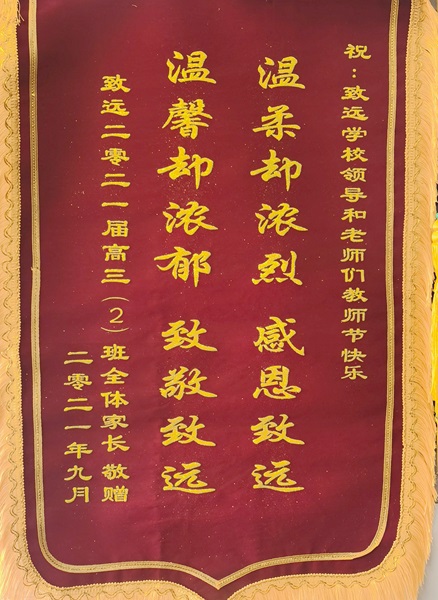 祝：致远学校领导和老师们教师节快乐
温柔却浓烈 感恩致远
温馨却浓郁 致敬致远
致远二零二一届高三（2）班全体家长敬赠
二零二一年九月